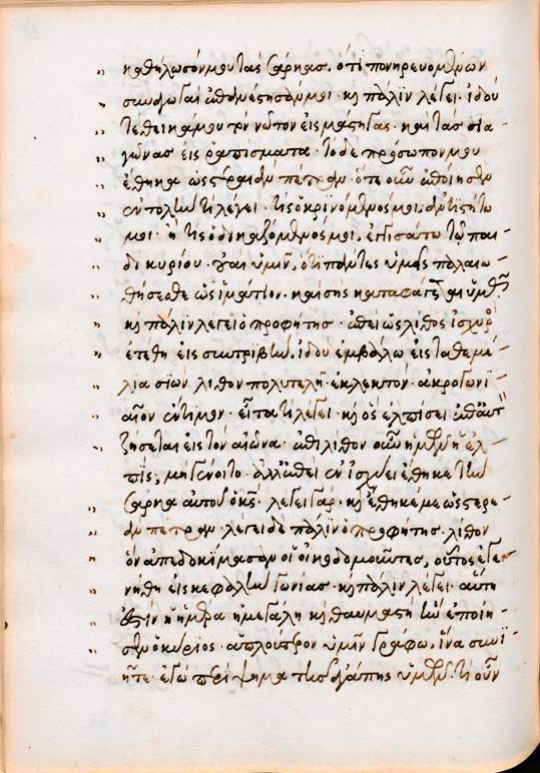 καθήλωσόν μου τὰς σάρκας. ὅτι πονηρευομένων
συναγωγαὶ ἐπανέστησάν μοι. καὶ πάλιν λέγει· ἰδοὺ
τέθεικά μου τὸν νῶτον εἰς μάστιγας. καὶ τὰς σια-
γόνας εἰς ῥαπίσματα· τὸ δὲ πρόσωπόν μου
ἔθηκα ὡς στερεὰν πέτραν· ὅτε οὖν ἐποίησεν
ἐντολὴν τί λέγει· τίς ὁ κρινόμενός μοι, ἀντιστήτω
μοι· ἢ τίς ὁ δικαζόμενός μοι, ἐγγισάτω τῷ παι-
δὶ κυρίου· οὐαὶ ὑμῖν, ὅτι πάντες ὑμεῖς παλαιω-
θήσεσθε ὡς ἱμάτιον. καὶ σὴς καταφάγεται ὑμᾶς
καὶ πάλιν λέγει ὁ προφήτης· ἐπεὶ ὡς λίθος ἰσχυρὸς
ἐτέθη εἰς συντριβήν. ἰδοὺ ἐμβάλλω εἰς τὰ θεμέ-
λια σιὼν λίθον πολυτελῆ· ἐκλεκτόν· ἀκρογωνι-
αῖον ἔντιμον· εἶτα τί λέγει· καὶ ὃς ἐλπίσει ἐπ' αὐτὸν
ζήσεται εἰς τὸν αἰῶνα· ἐπὶ λίθον οὖν ἡμῶν ἡ ἐλ-
πίς; μὴ γένοιτο· ἀλλ' ἐπεὶ ἐν ἰσχύϊ ἔθηκε τὴν
σάρκα αὐτοῦ ὁ κς· λέγει γάρ· καὶ ἔθηκέ με ὡς στερε-
ὰν πέτραν· λέγει δὲ πάλιν ὁ προφήτης· λίθον
ὃν ἀπεδοκίμασαν οἱ οἰκοδομοῦντες, οὗτος ἐγε-
νήθη εἰς κεφαλὴν γωνίας· καὶ πάλιν λέγει· αὕτη
ἐστὶν ἡ ἡμέρα ἡ μεγάλη καὶ θαυμαστὴ ἣν ἐποίη-
σεν ὁ κύριος· ἁπλούστερον ὑμῖν γράφω, ἵνα συνι-
ῆτε· ἐγὼ περίψημα τῆς ἀγάπης ὑμῶν· τί οὖν